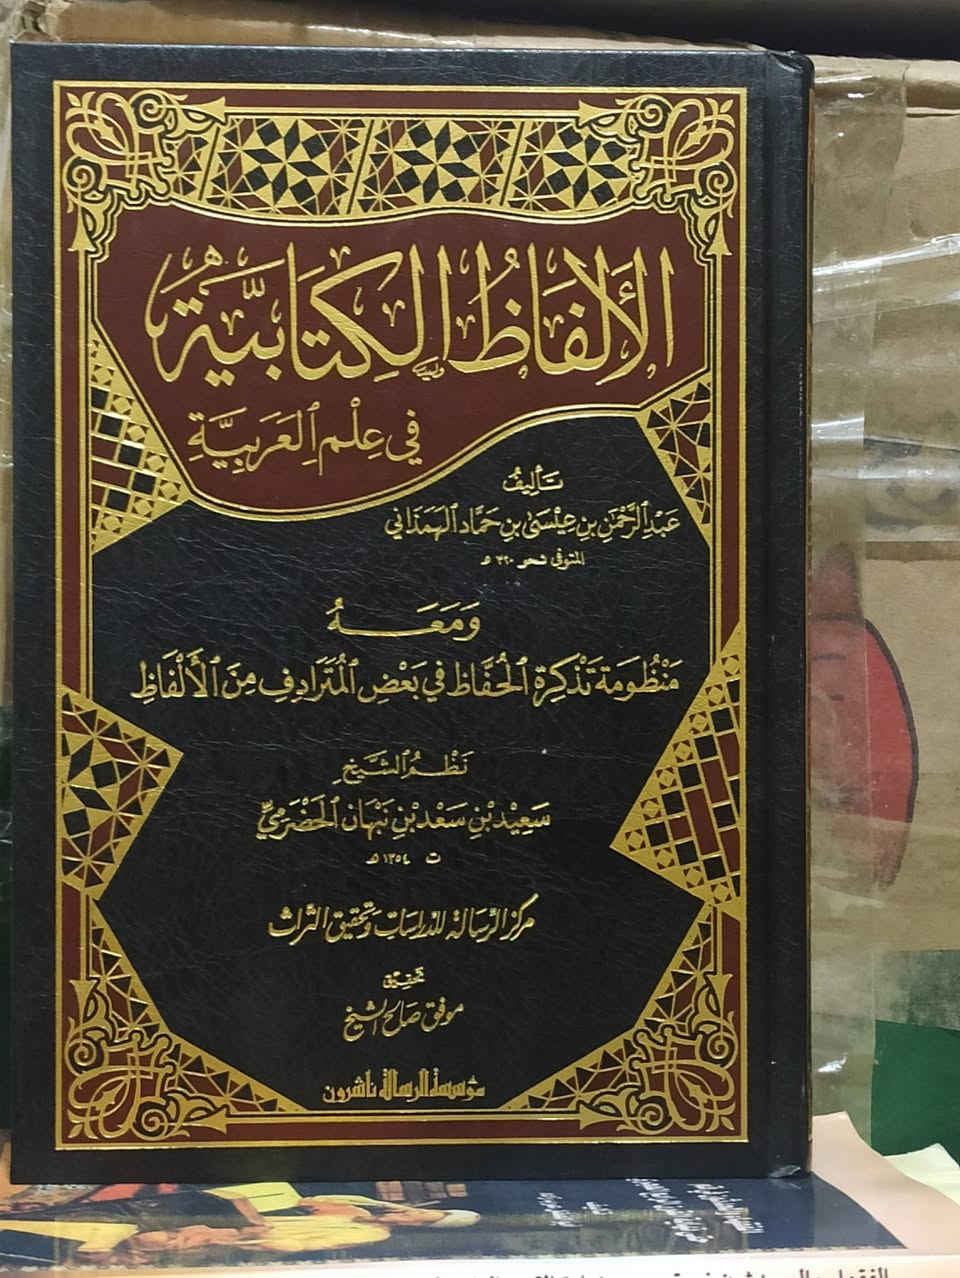 الأَلفَاظُ الكِتَابيَّة
فِي عِلْم العَرَبِيَّةِ
تَأليفُ
عَبْدِ الرَّحْمٰنِ بنِ عِيْسَىٰ بنِ حَمَّاد الهَمَذَاني
المتوفى نحو ٣٢٠ هـ
وَمَعَهُ
مَنْظُومَة تَذْكِرة الحُفَّاظ في بَعْضِ المُتَرَادِفِ مِنَ الأَلْفَاظِ
نَظْمُ الشَّيخِ
سَعِيْد بْنِ سَعْد بْنِ نَبْهَان الحَضْرَمِيِّ
ت ١٣٥٤ هـ
مركز الرسالة للدراسات وتحقيق التراث
تحقيق
موفق صالح الشيخ
مؤسسة الرسالة ناشرون